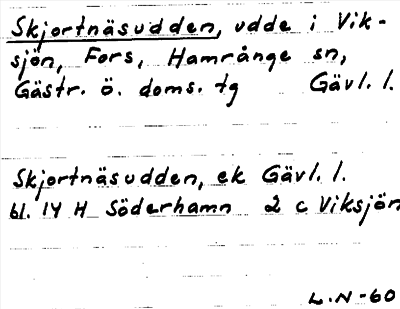 Skjortnäsudden, udde i Vik-
sjön, Fors, Hamrånge sn,
Gästr. ö. doms. tg Gävl. l.
Skjortnäsudden, ek Gävl. l.
bl. 14 H Söderhamn 2 c Viksjön
L.N-60